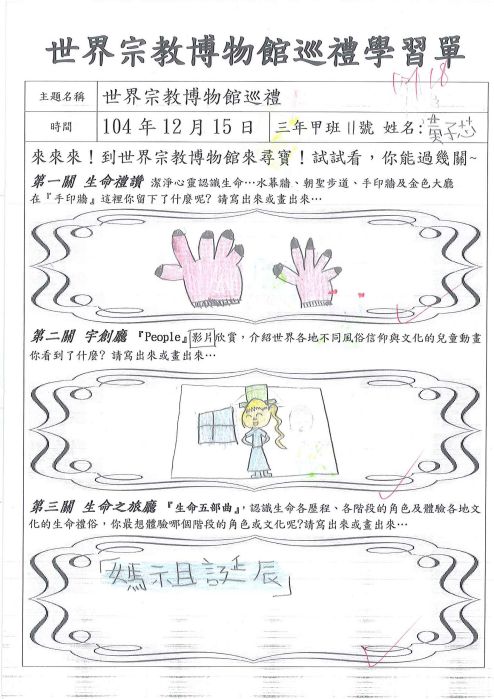 世界宗教博物館巡禮學習單
主題名稱 世界宗教博物館巡禮
時間 104 年 12 月 15 日 三年甲班 11 號 姓名: 黃子芯
來來來！到世界宗教博物館來尋寶！試試看，你能過幾關~
第一關 生命禮讚 潔淨心靈認識生命…水幕牆、朝聖步道、手印牆及金色大廳
在『手印牆』這裡你留下了什麼呢? 請寫出來或畫出來…
第二關 宇創廳 『People』影片欣賞，介紹世界各地不同風俗信仰與文化的兒童動畫
你看到了什麼? 請寫出來或畫出來…
第三關 生命之旅廳 『生命五部曲』，認識生命各歷程、各階段的角色及體驗各地文
化的生命禮俗，你最想體驗哪個階段的角色或文化呢?請寫出來或畫出來…
「媽祖誕辰」